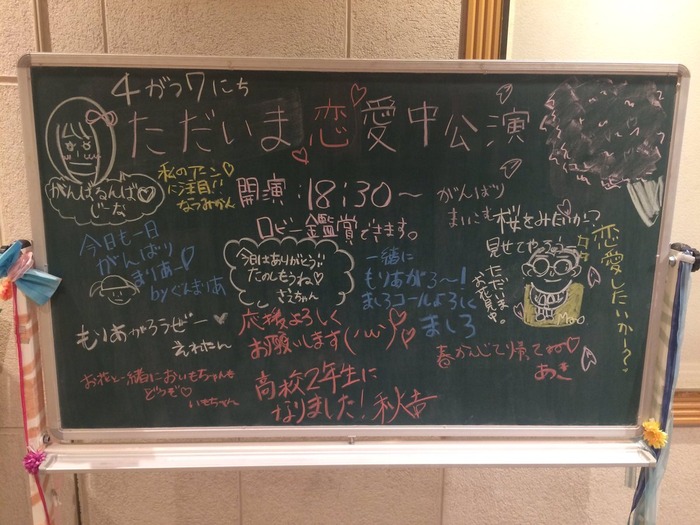 4がつ7にち
ただいま恋愛中公演
がんばるんば♡
じーな
私のアニン♡
に注目!!
なつみかん
開演:18:30〜
ロビー鑑賞できます。
がんばり
まいにち
桜をみたいか?
見せてやろう
ただいま
お花見中。
恋愛したいか〜?
今日も一日
がんばり
まりあー!
byぐんまりあ
今日はありがとう!!
たのしもうね♡
さえちゃん
一緒に
もりあがろ〜!
ましろコールよろしく
ましろ
もりあがろうぜー♥
えれたん
応援よろしく
お願いします(˘ω˘)
春かんじて帰ってね♡
あき
お花と一緒においもちゃんも
どうぞ♡
いもちゃん
高校2年生に
なりました!秋吉